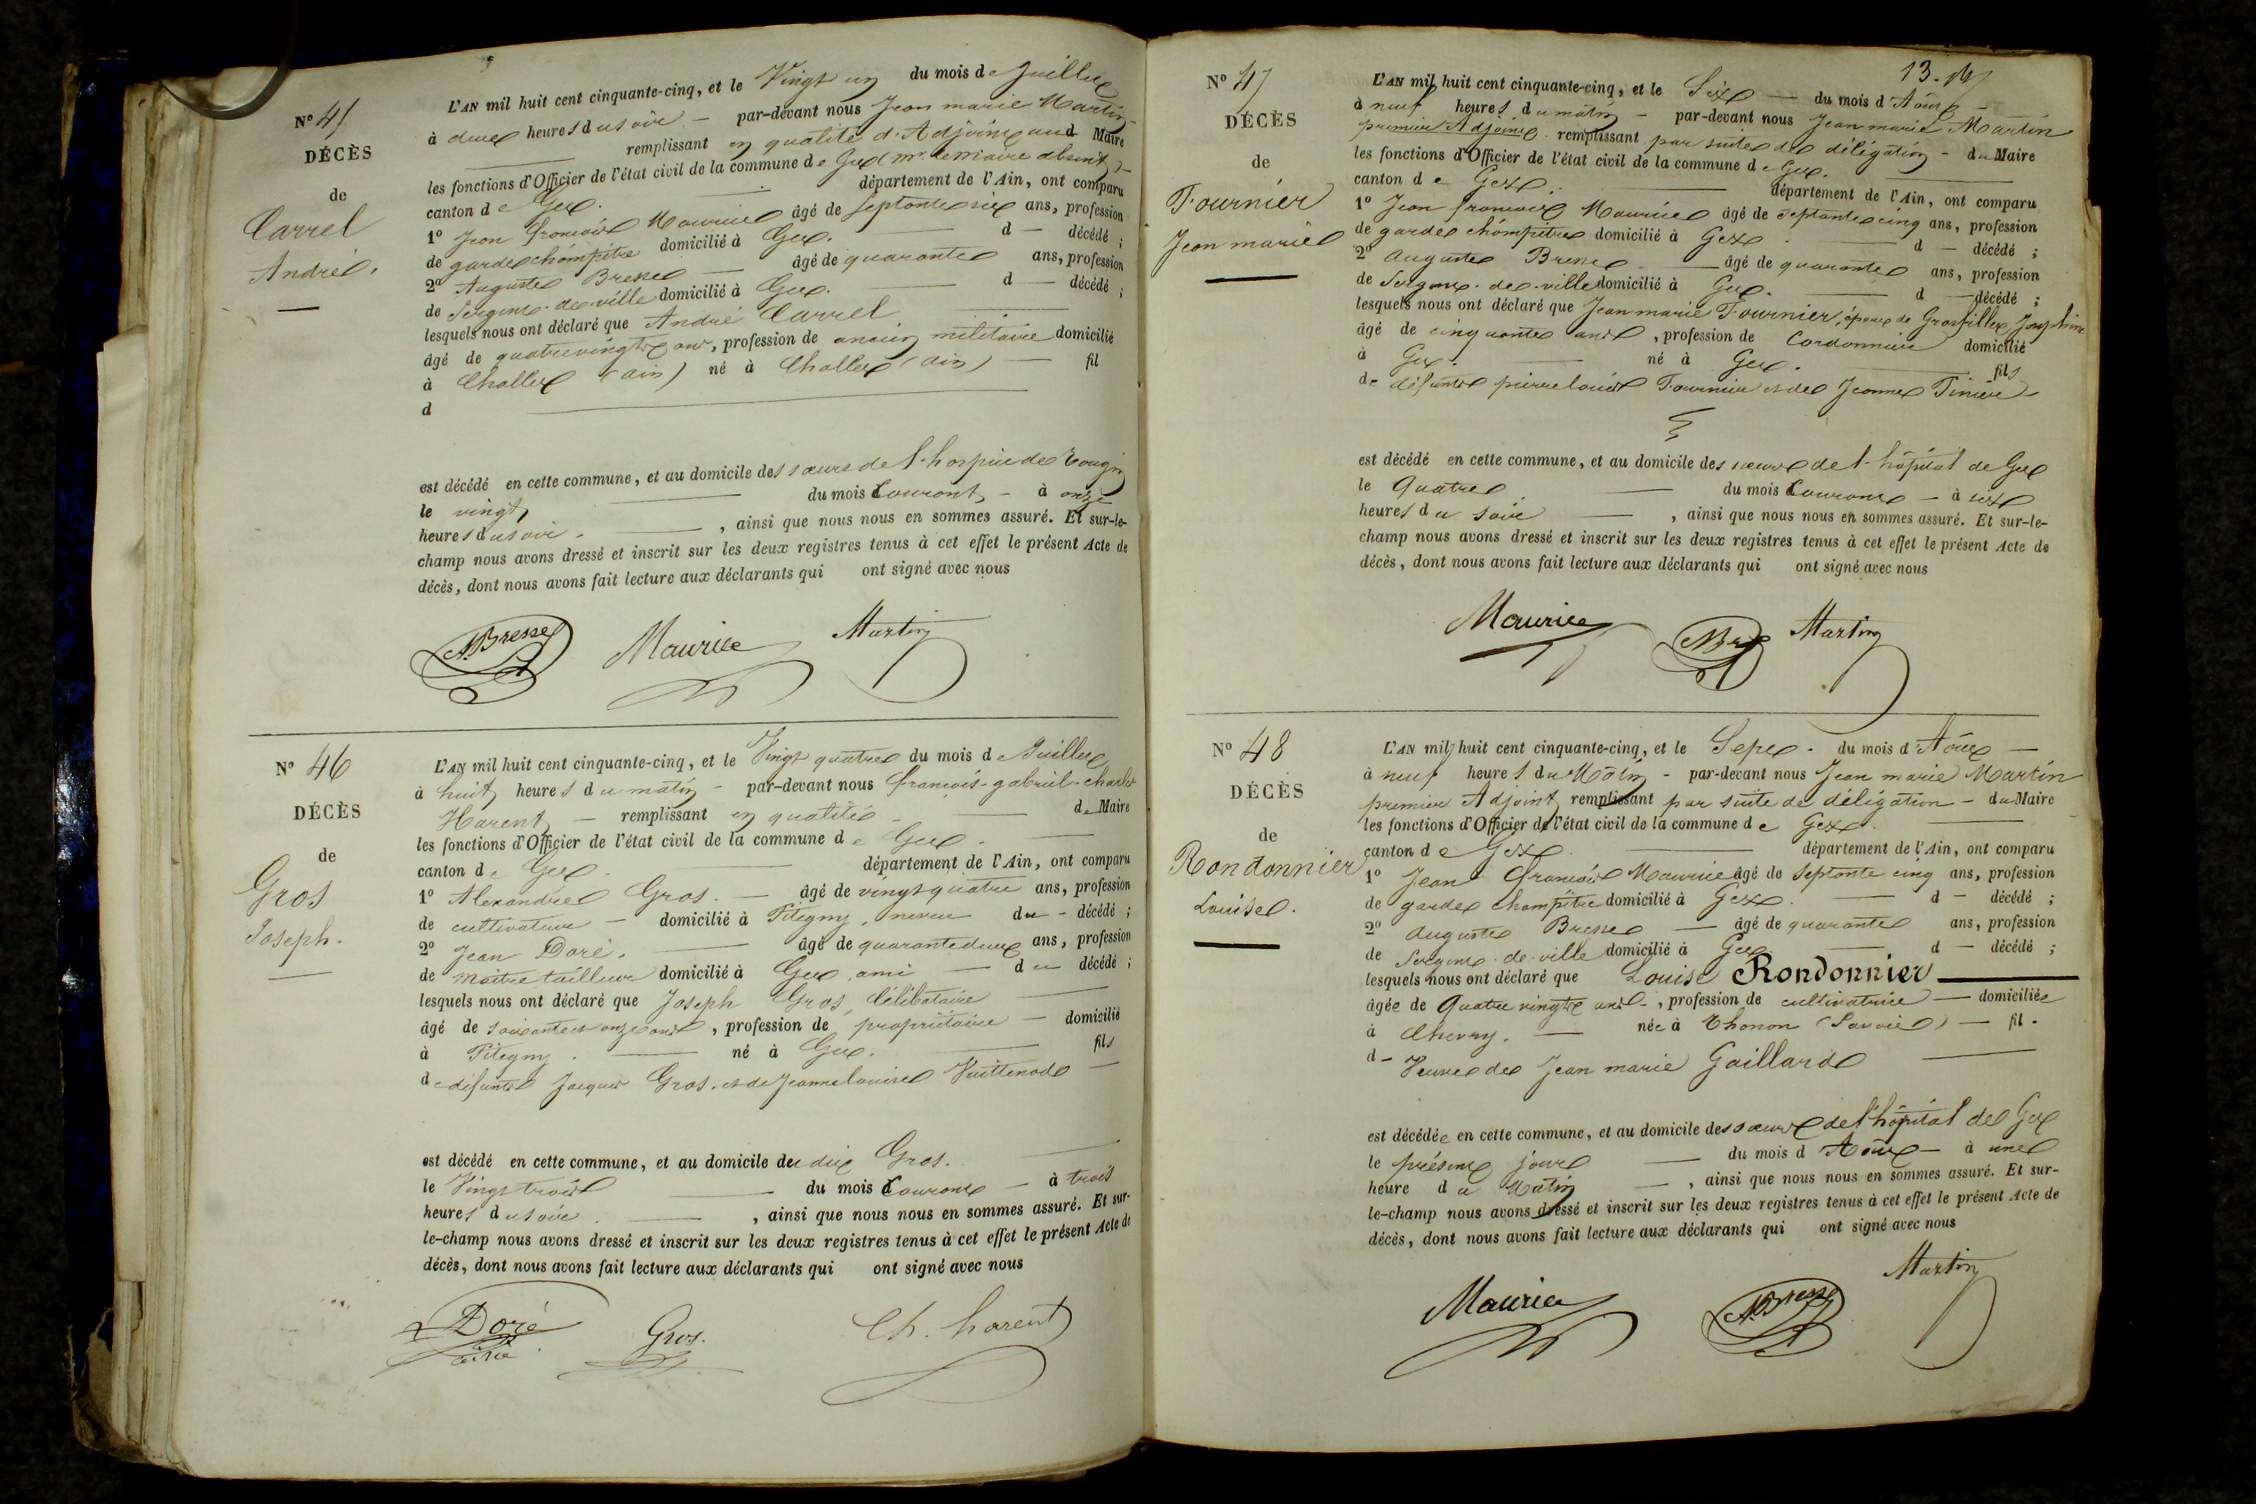 N° 45
DÉCÈS
de
Carrel
André.
L'AN mil huit cent cinquante-cinq, et le Vingt un du mois de Juillet
à deux heures du soir - par-devant nous Jean marie Martin
remplissant en qualité d'Adjoint aud Maire
les fonctions d'Officier de l'état civil de la commune de Gex (mr. le maire absent)
canton de Gex. département de l'Ain, ont comparu
1° Jean françois Maurice âgé de septante six ans, profession
de garde champêtre domicilié à Gex. d décédé ;
2° Auguste Bresse âgé de quarante ans, profession
de Sergent de ville domicilié à Gex. d décédé ;
lesquels nous ont déclaré que André Carrel
âgé de quatrevingts ans, profession de ancien militaire domicilié
à Challex (ain) né à Challex (ain) fil
d
est décédé en cette commune, et au domicile des sœurs de l'hospice de Tougin
le vingt du mois Courant - à onze
heures du soir. , ainsi que nous nous en sommes assuré. Et sur-le-
champ nous avons dressé et inscrit sur les deux registres tenus à cet effet le présent Acte de
décès, dont nous avons fait lecture aux déclarants qui ont signé avec nous
A. Bresse Maurice Martin
N° 46
DÉCÈS
de
Gros
Joseph.
L'AN mil huit cent cinquante-cinq, et le Vingt quatre du mois de Juillet
à huit heures du matin - par-devant nous françois-gabriel-charles
Harent remplissant en qualité de Maire
les fonctions d'Officier de l'état civil de la commune de Gex.
canton de Gex département de l'Ain, ont comparu
1° Alexandre Gros. âgé de vingt quatre ans, profession
de cultivateur domicilié à Pitegny, neveu du décédé ;
2° Jean Doré. âgé de quarante deux ans, profession
de maître tailleur domicilié à Gex ami du décédé ;
lesquels nous ont déclaré que Joseph Gros, Célibataire
âgé de soixante et onze ans, profession de propriétaire domicilié
à Pitegny. né à Gex. fils
de défunts Jacques Gros. et de Jeanne louise Vuittenod
est décédé en cette commune, et au domicile du dit Gros.
le Vingt trois du mois Courant à trois
heures du soir. , ainsi que nous nous en sommes assuré. Et sur-
le-champ nous avons dressé et inscrit sur les deux registres tenus à cet effet le présent Acte de
décès, dont nous avons fait lecture aux déclarants qui ont signé avec nous
Doré Gros. Ch. harent
13.
N° 47
DÉCÈS
de
Fournier
Jean marie
L'AN mil huit cent cinquante-cinq, et le Six du mois d'Aôut
à neuf heures du matin - par-devant nous Jean marie Martin
premier Adjoint remplissant par suite de délégation - du Maire
les fonctions d'Officier de l'état civil de la commune de Gex.
canton de Gex. département de l'Ain, ont comparu
1° Jean françois Maurice âgé de septante cinq ans, profession
de garde champêtre domicilié à Gex. d décédé ;
2° Auguste Bresse âgé de quarante ans, profession
de Sergent de ville domicilié à Gex. d décédé ;
lesquels nous ont déclaré que Jean marie Fournier, époux de Grosfillex Josephine
âgé de cinquante ans, profession de Cordonnier domicilié
à Gex. né à Gex. fils
de défunts pierre louis Fournier et de Jeanne Tinière
est décédé en cette commune, et au domicile des sœurs de l'hôpital de Gex
le Quatre du mois Courant - à six
heures du soir , ainsi que nous nous en sommes assuré. Et sur-le-
champ nous avons dressé et inscrit sur les deux registres tenus à cet effet le présent Acte de
décès, dont nous avons fait lecture aux déclarants qui ont signé avec nous
Maurice Martin
N° 48
DÉCÈS
de
Rondonnier
Louise.
L'AN mil huit cent cinquante-cinq, et le Sept. du mois d'Aôut
à neuf heures du Mâtin - par-devant nous Jean marie Martin
premier Adjoint remplissant par suite de délégation - du Maire
les fonctions d'Officier de l'état civil de la commune de Gex.
canton de Gex. département de l'Ain, ont comparu
1° Jean François Maurice âgé de septante cinq ans, profession
de garde champêtre domicilié à Gex. d décédé ;
2° Auguste Bresse âgé de quarante ans, profession
de Sergent de ville domicilié à Gex d décédé ;
lesquels nous ont déclaré que Louise Rondonnier
âgée de Quatre vingts ans, profession de cultivatrice domiciliée
à Chevry. née à Thonon (Savoie) fil.
d Veuve de Jean marie Gaillard
est décédée en cette commune, et au domicile des sœurs de l'hôpital de Gex
le présent jour du mois d Aôut à une
heure du Mâtin , ainsi que nous nous en sommes assuré. Et sur-
le-champ nous avons dressé et inscrit sur les deux registres tenus à cet effet le présent Acte de
décès, dont nous avons fait lecture aux déclarants qui ont signé avec nous
Maurice A. Bresse Martin